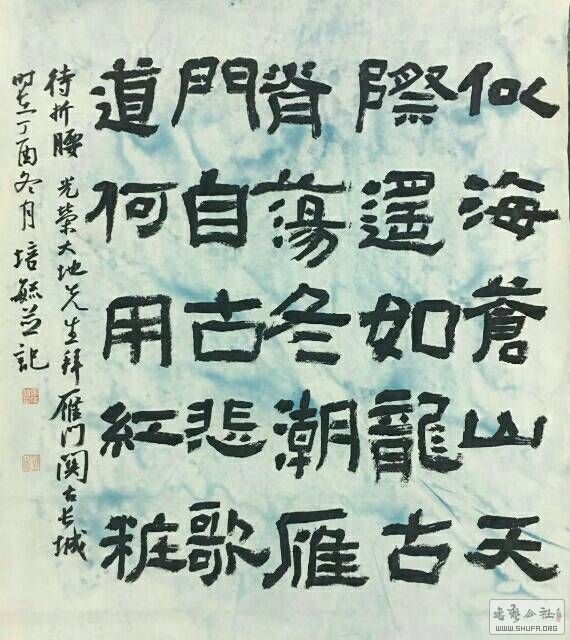 似海蒼山天
際遥如龍古
脊蕩冬潮雁
門自古悲歌
道何用紅粧
待折腰 光榮大地先生拜雁门関古长城
时在丁酉冬月培毓并记
书艺公社
WWW.SHUFA.ORG